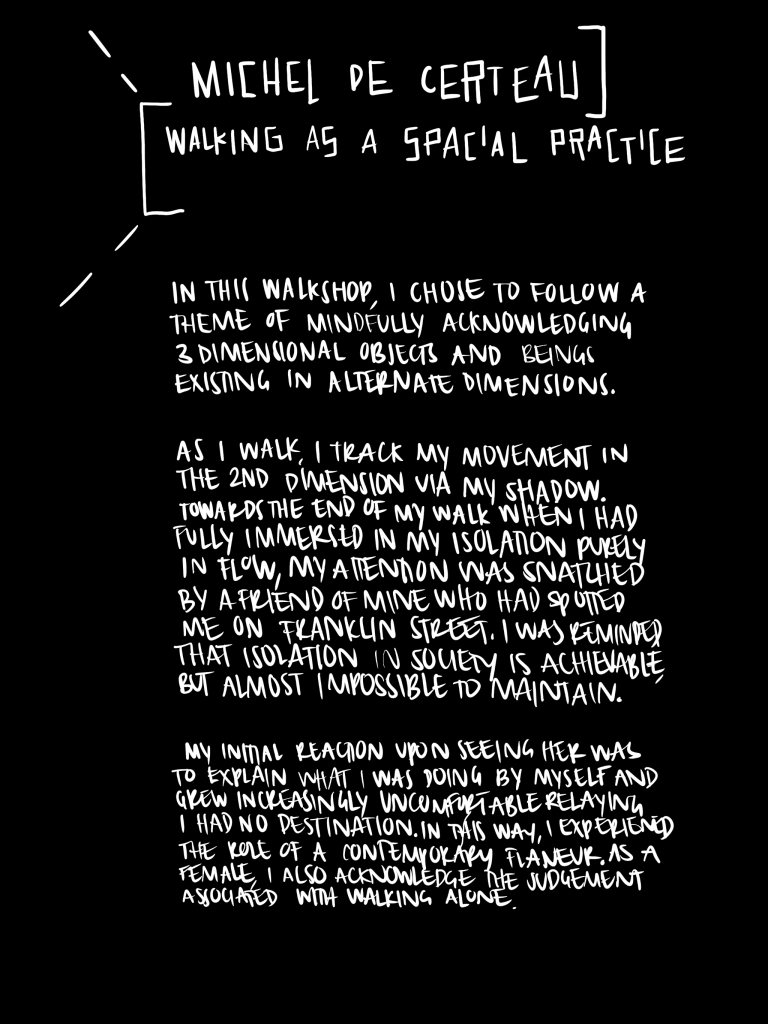 MICHEL DE CERTEAU
WALKING AS A SPACIAL PRACTICE
IN THIS WALKSHOP, I CHOSE TO FOLLOW A
THEME OF MINDFULLY ACKNOWLEDGING
3 DIMENSIONAL OBJECTS AND BEINGS
EXISTING IN ALTERNATE DIMENSIONS.
AS I WALK, I TRACK MY MOVEMENT IN
THE 2ND DIMENSION VIA MY SHADOW.
TOWARDS THE END OF MY WALK WHEN I HAD
FULLY IMMERSED IN MY ISOLATION PURELY
IN FLOW, MY ATTENTION WAS SNATCHED
BY A FRIEND OF MINE WHO HAD SPOTTED
ME ON FRANKLIN STREET. I WAS REMINDED
THAT ISOLATION IN SOCIETY IS ACHIEVABLE,
BUT ALMOST IMPOSSIBLE TO MAINTAIN.
MY INITIAL REACTION UPON SEEING HER WAS
TO EXPLAIN WHAT I WAS DOING BY MYSELF AND
GREW INCREASINGLY UNCOMFORTABLE RELAYING
I HAD NO DESTINATION. IN THIS WAY, I EXPERIENED
THE ROLE OF A CONTEMPORARY FLANEUR. AS A
FEMALE, I ALSO ACKNOWLEDGE THE JUDGEMENT
ASSOCIATED WITH WALKING ALONE.